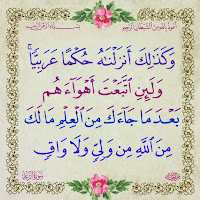 أعوذ بالله من الشيطان الرجيم
وَكَذَٰلِكَ أَنزَلْنَٰهُ حُكْمًا عَرَبِيًّا ۚ
وَلَئِنِ ٱتَّبَعْتَ أَهْوَآءَهُم
بَعْدَ مَا جَآءَكَ مِنَ ٱلْعِلْمِ مَا لَكَ
مِنَ ٱللَّهِ مِن وَلِىٍّ وَلَا وَاقٍ
سورة الرعد